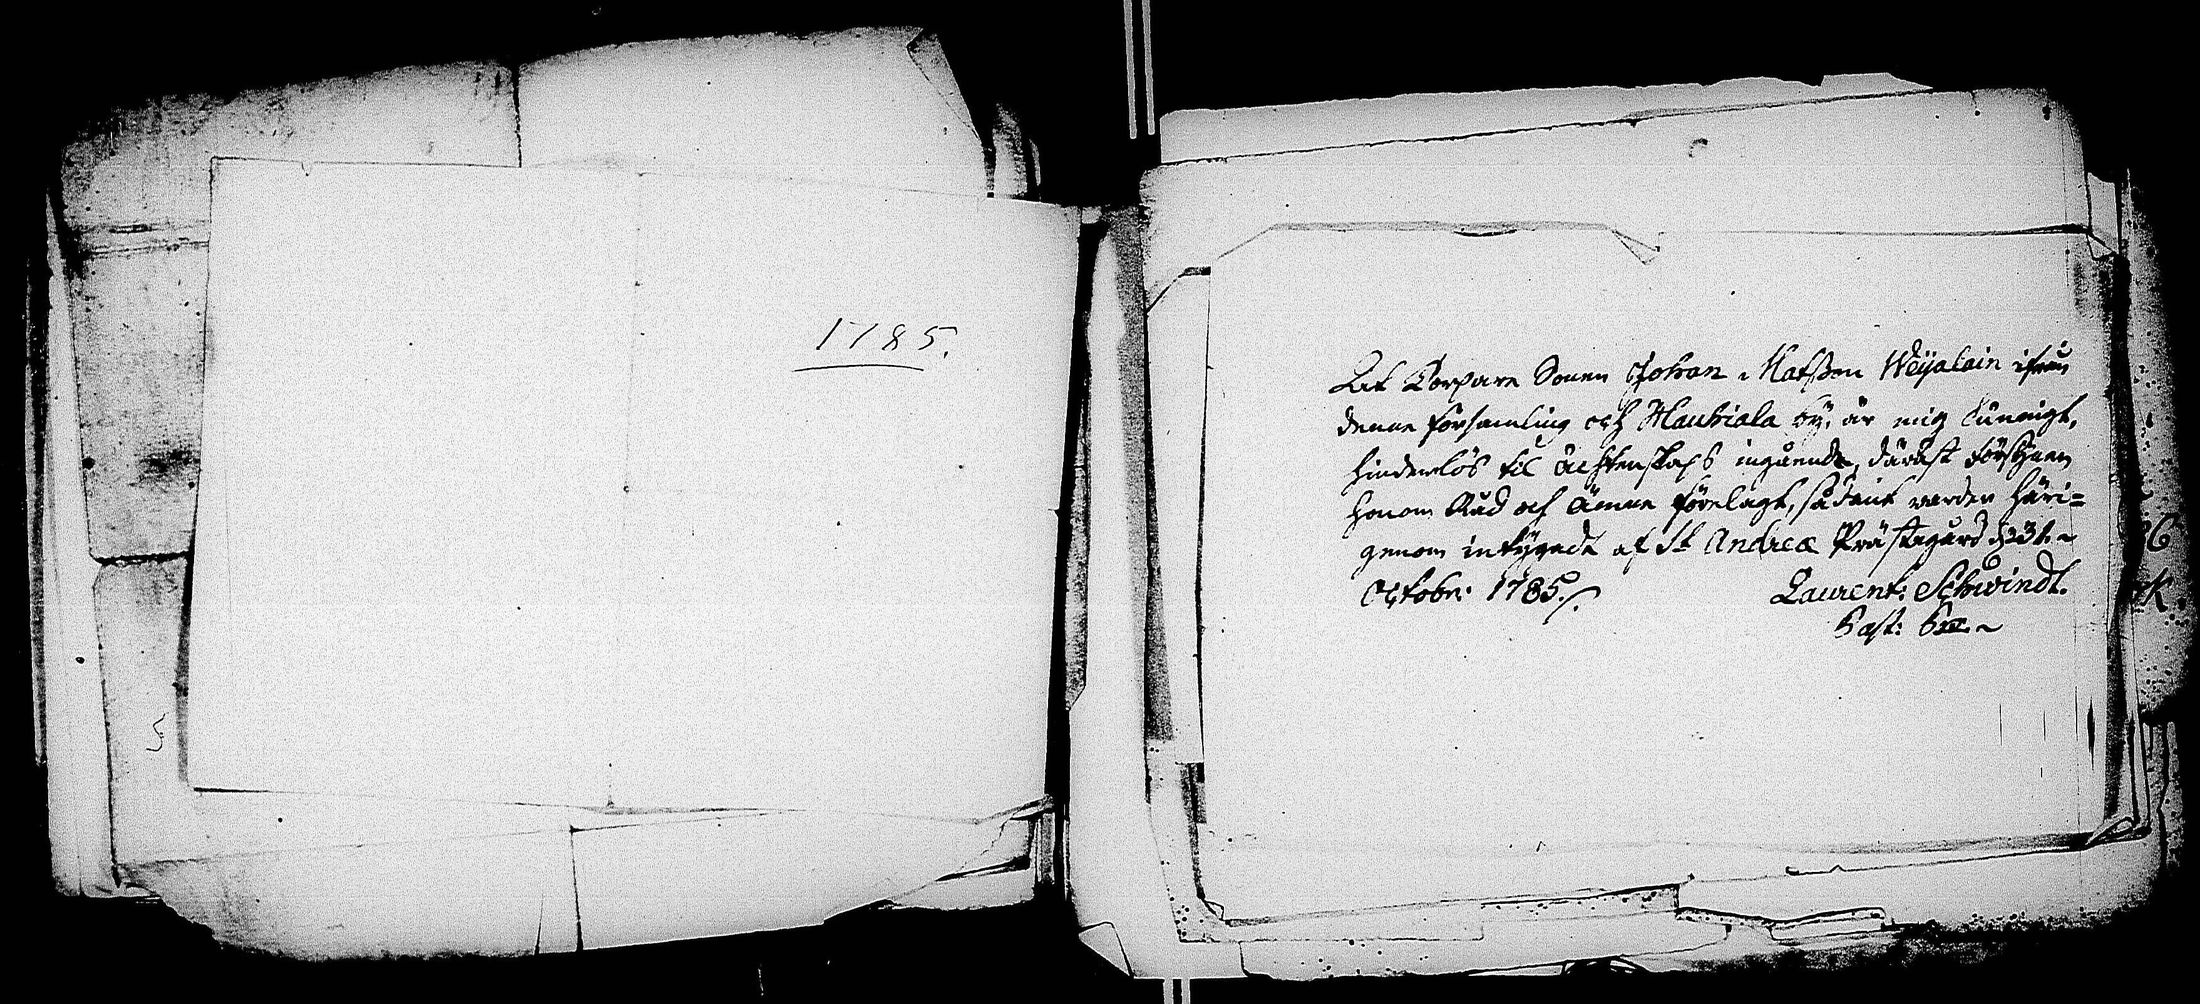 1785.
At Torpare Sonen Johan Matsson Weijalain ifrån
denne församling och Hauhiala by, är mig kunnigt,
hinderlös til ächtenskaps ingående, däräst
honom Råd och Ämne förelagt, sådant warder häri=
genom intygadt af St Andreæ Prästegård d 23t
Octobr: 1785./.
Laurent: Schwindt.
Past: